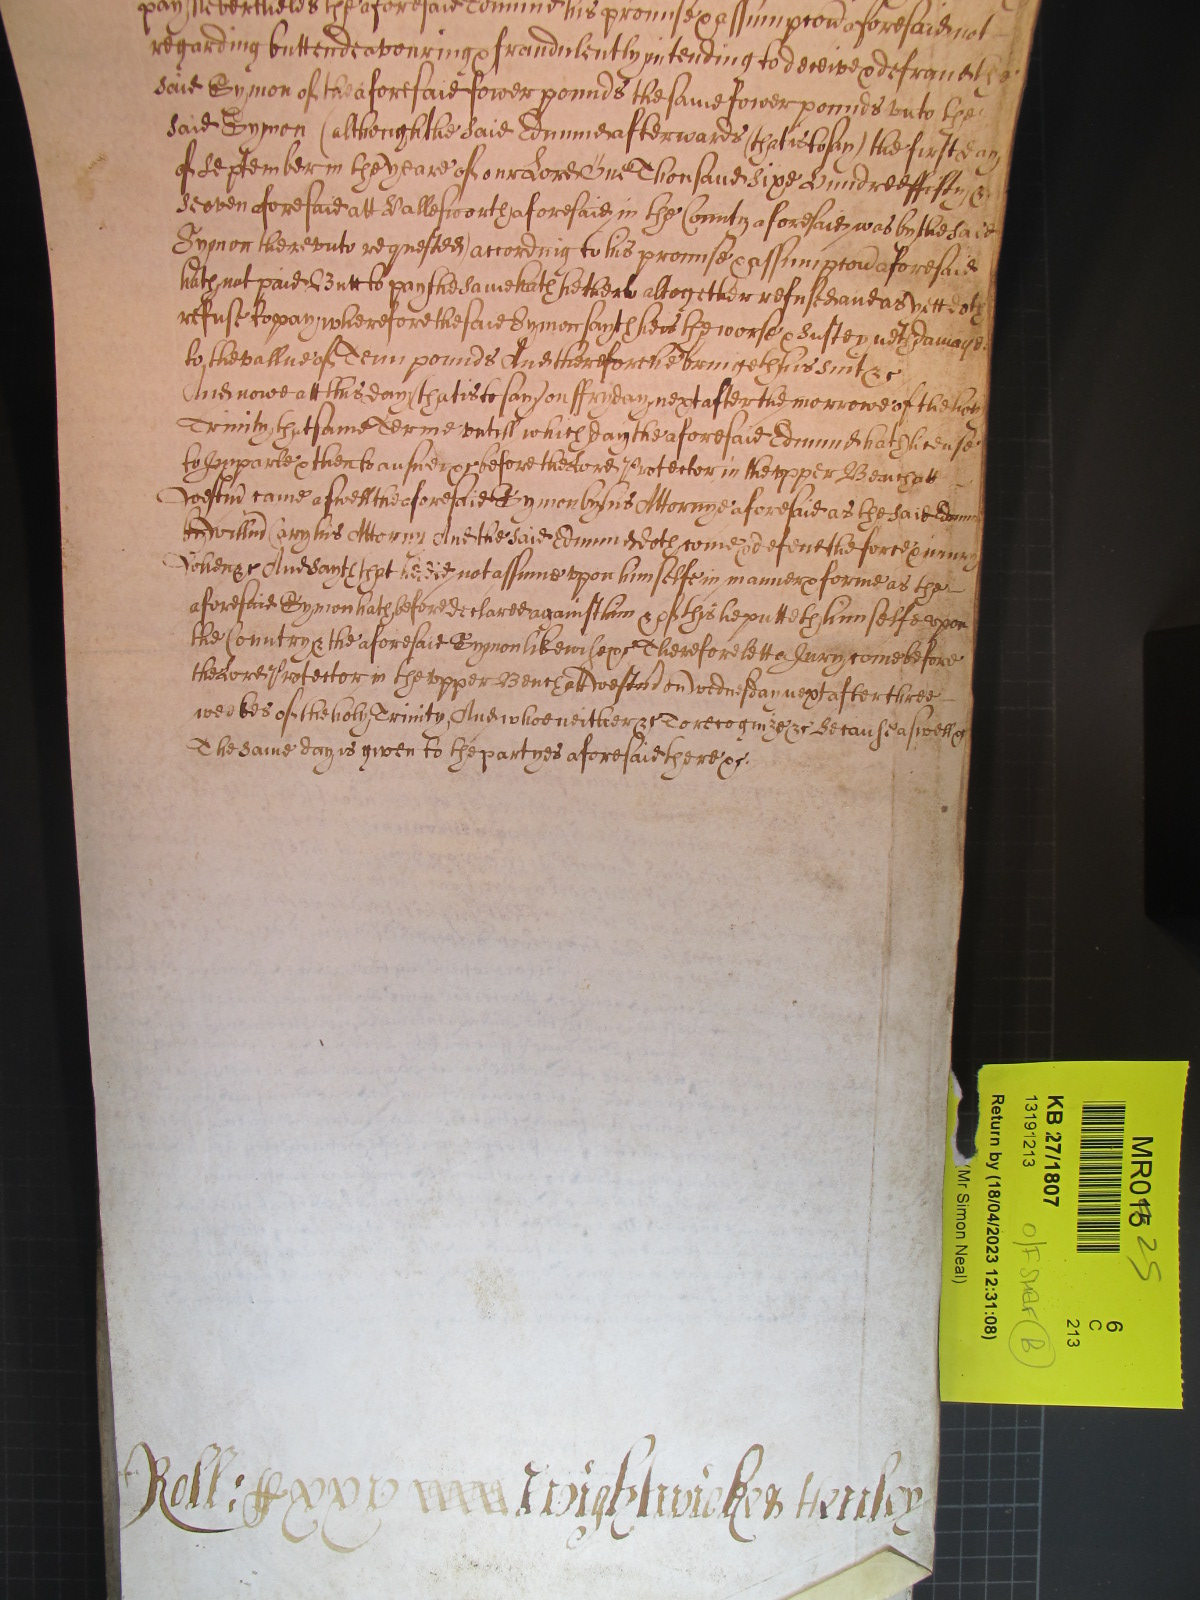 pay Neverthelesse the aforesaid Edmund his promise & assumpcon aforesaid not
regarding butt endeavouring & fraudulently intending to deceive & defraud the
said Symon of the aforesaid fower pounds the same fower pounds unto the
said Symon (although the said Edmund afterwards (that is to say) the first day
of September in the yeare of our Lord One Thousand Sixe Hundred ffifty &
Seven aforesaid att Wallesworth aforesaid in the County aforesaid was by the said
Symon thereunto requested) according to his promise & assumpcon aforesaid
hath not paid Butt to pay the same hath hetherto altogether refused and as yett doth
refuse to pay, wherefore the said Symon sayth hee is the worse & Susteyneth damage
to the vallue of Tenn pounds And therefore he bringeth his suit &c
And nowe att this day (that is to say) on ffryday next after the morrowe of the holy
Trinity that same Terme untill which day the aforesaid Edmund hath license
to Imparle & then to answer &c before the Lord Protector in the upper Bench att
Westmr came aswell the aforesaid Symon by his Attorney aforesaid as the said Edmund
by Willm Cary his Attorny And the said Edmund doth come & defend the force & iniury
When &c And sayth that he did not assume upon himselfe in manner & forme as the
aforesaid Symon hath before declared against him & of this he putteth himselfe upon
the Country & the aforesaid Symon likewise &c Therefore lett a Jury come before
the Lord Protector in the upper Bench att Westmr on Wednesday next after three
weekes of the holy Trinity, And whoe neither &c To recognize &c Because aswell &c
The same day is given to the partyes aforesaid there &c
Roll: Wightwicke & Henley
MR018 25
6
C
213
KB 27/1807
13191213
O/F SMAF B
Return by (18/04/2023 12:31:08)
(Mr Simon Neal)